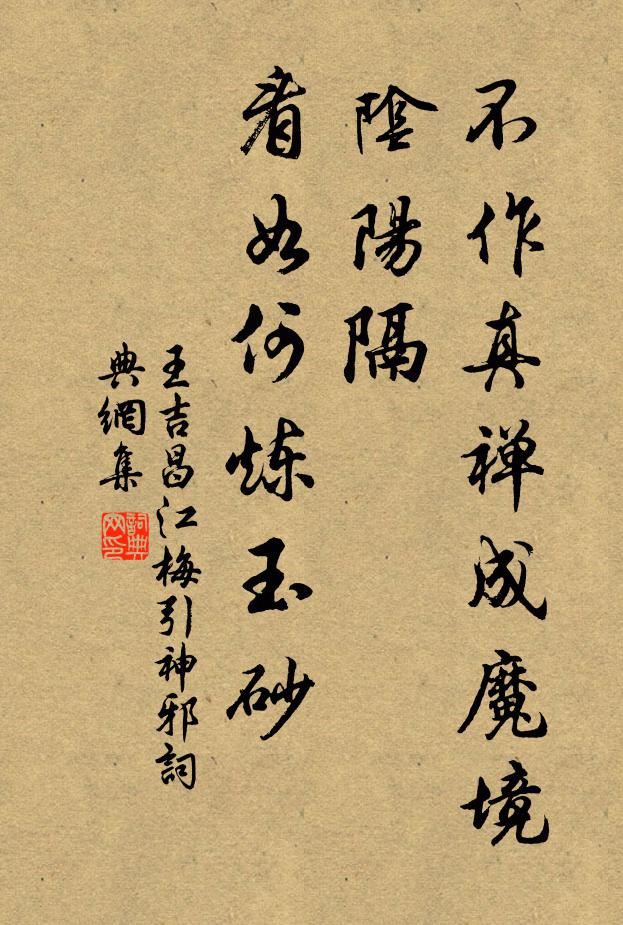 不作真禅成魔境
陰陽隔
看如何炼玉砂
王吉昌江梅引神邪詞
典網集
詞典
网印